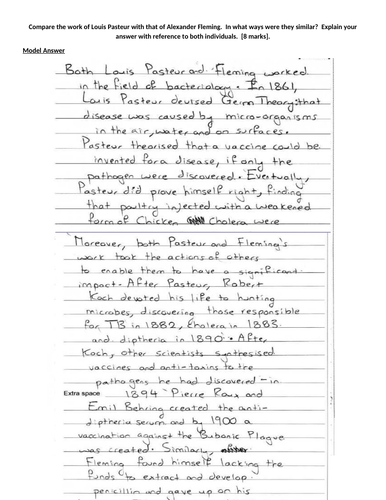 Compare the work of Louis Pasteur with that of Alexander Fleming. In what ways were they similar? Explain your
answer with reference to both individuals. [8 marks].
Model Answer
Both Louis Pasteur and Fleming worked
in the field of bacteriology. In 1861,
Louis Pasteur devised Germ Theory: that
disease was caused by micro-organisms
in the air, water and on surfaces.
Pasteur theorised that a vaccine could be
invented for a disease, if only the
pathogen were discovered. Eventually,
Pasteur did prove himself right, finding
that poultry injected with a weakened
form of Chicken Cholera were
Moreover, both Pasteur and Fleming's
work took the actions of others
to enable them to have a significant
impact. After Pasteur, Robert
Koch devoted his life to hunting
microbes, discovering those responsible
for TB in 1882, Cholera in 1883
and diptheria in 1890. After
Koch, other scientists synthesised
vaccines and anti-toxins to the
pathogens he had discovered - in
Extra space 1894 Pierre Roux and
Emil Behring created the anti-
diptheria serum and by 1900 a
vaccination against the Bubonic Plague
was created. Similarly,
Fleming found himself lacking the
funds to extract and develop
penicillin and gave up on his